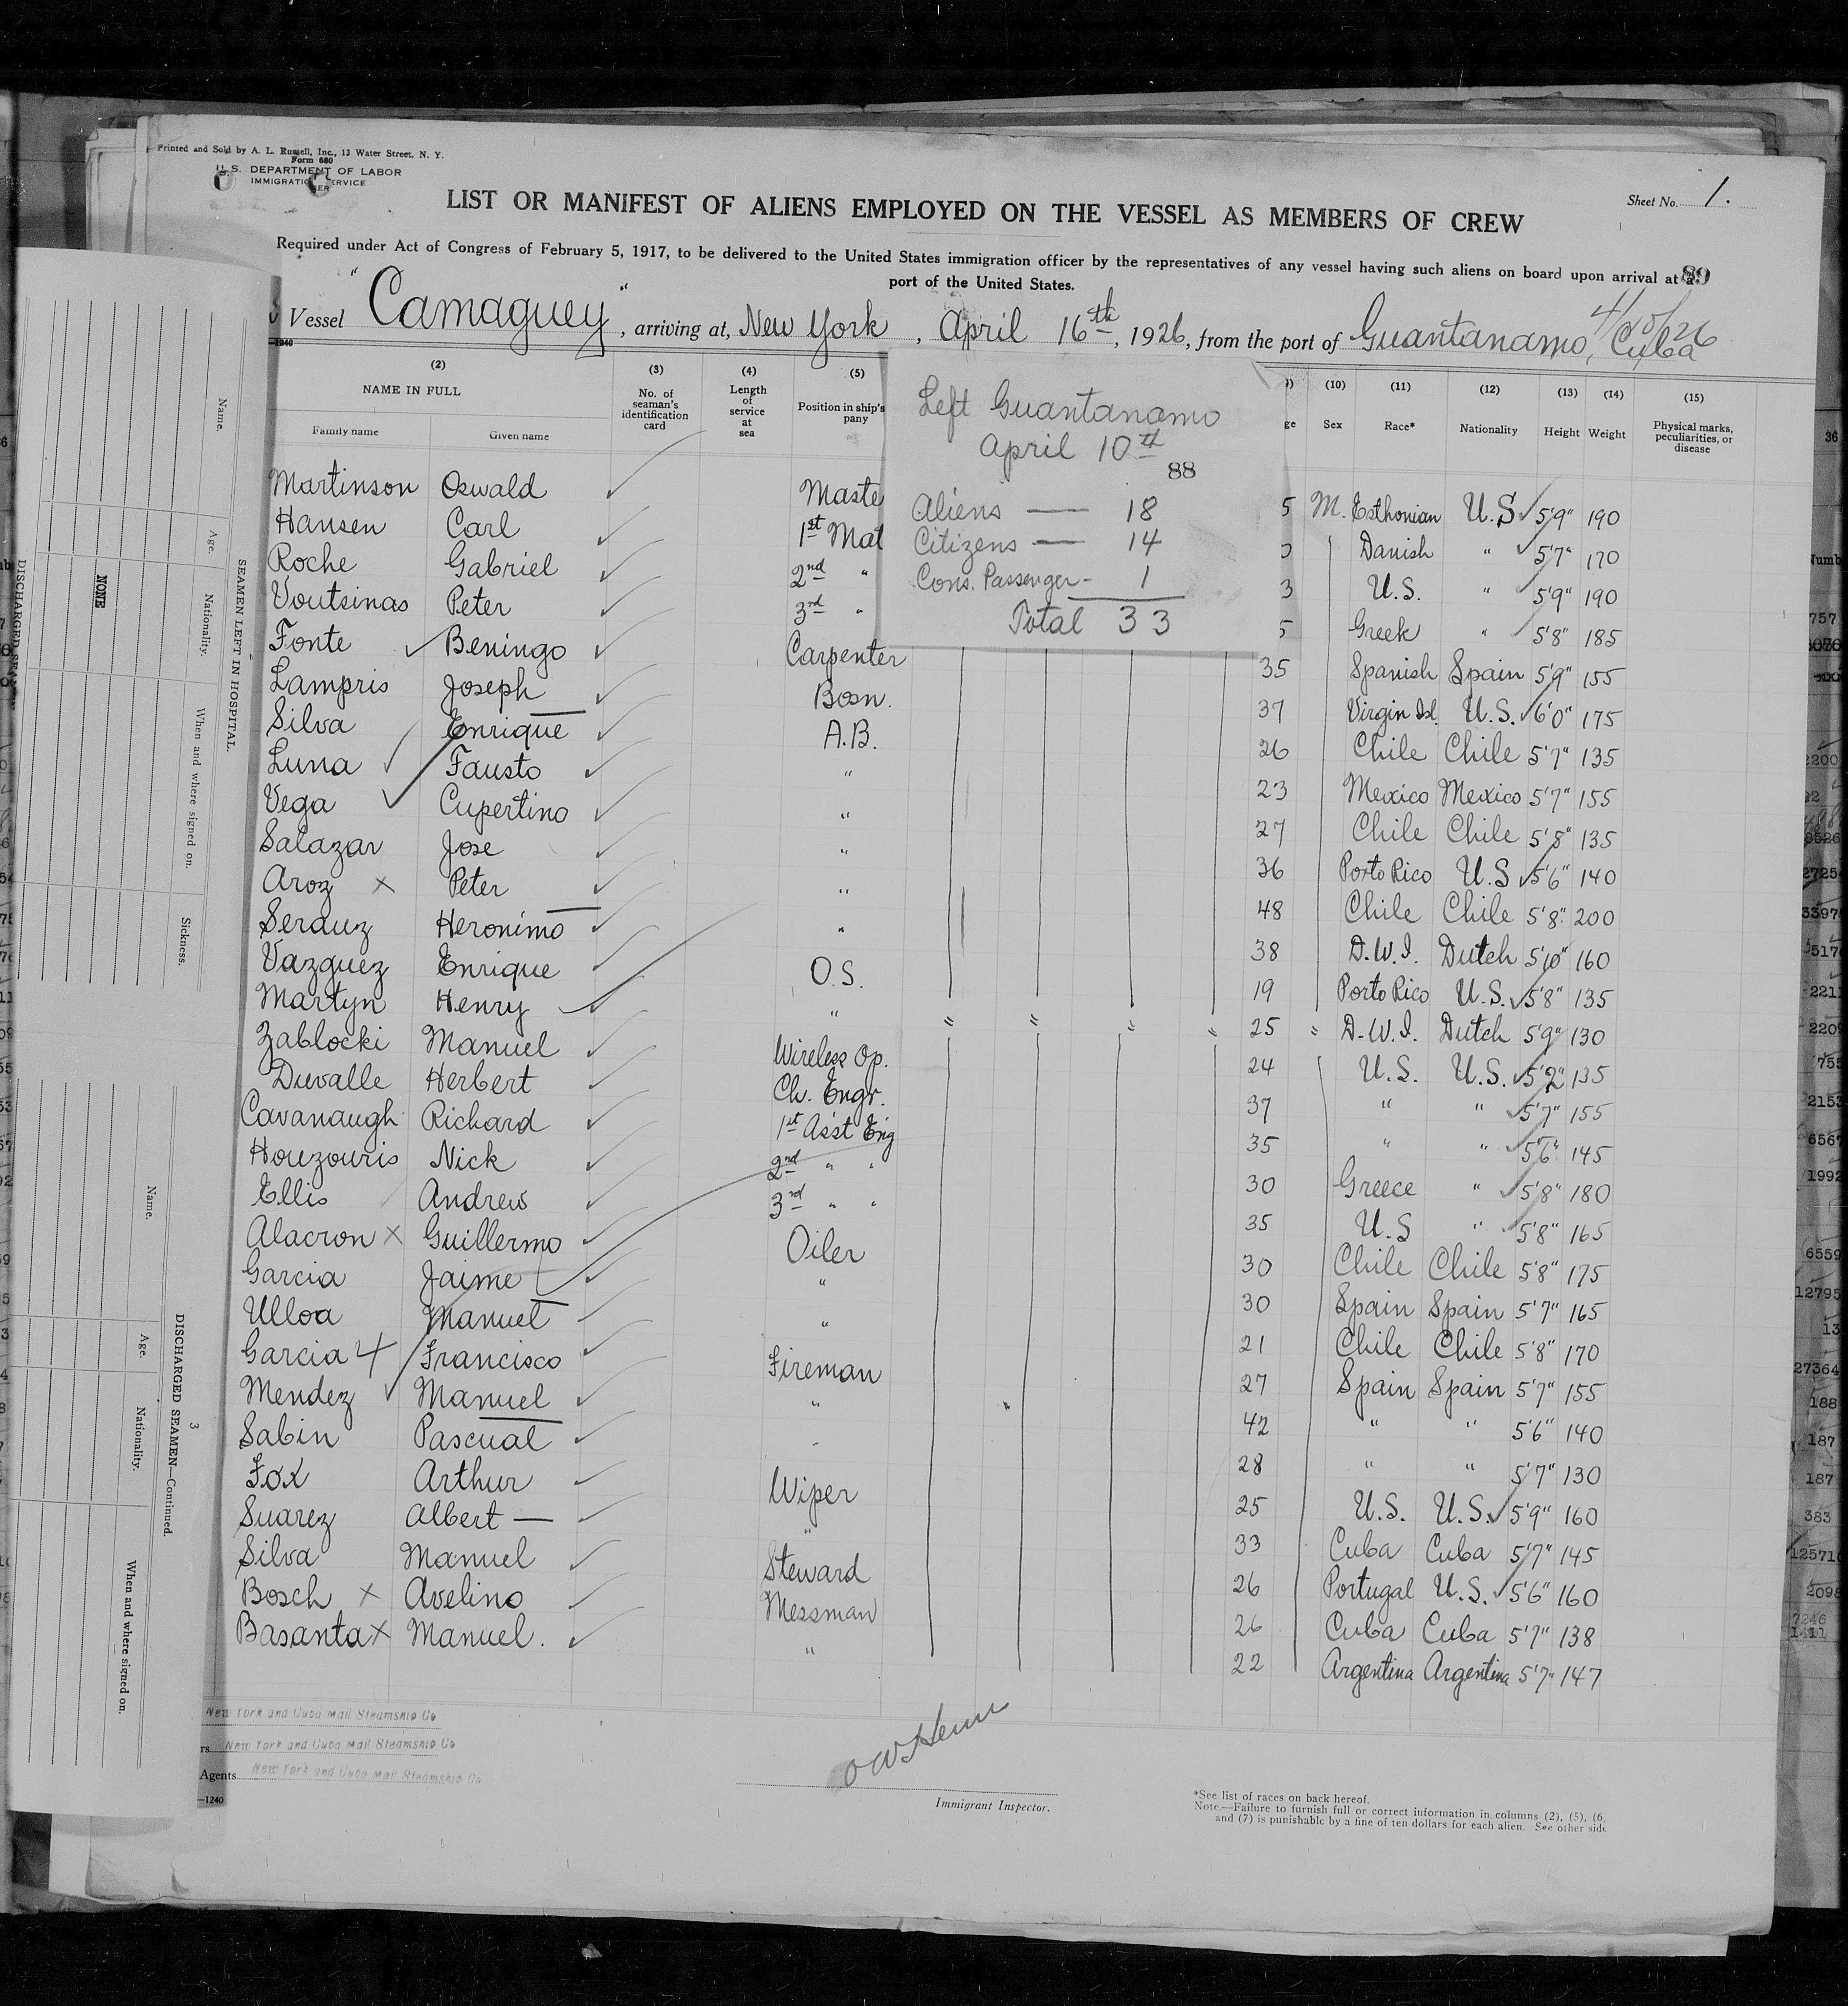 Printed and Sold by A. L. Russell, Inc., 13 Water Street, N. Y.
Form 680
U.S. DEPARTMENT OF LABOR
IMMIGRATION SERVICE
Sheet No. 1.
LIST OR MANIFEST OF ALIENS EMPLOYED ON THE VESSEL AS MEMBERS OF CREW
Required under Act of Congress of February 5, 1917, to be delivered to the United States immigration officer by the representatives of any vessel having such aliens on board upon arrival at a
port of the United States.
89
Vessel "Camaguey", arriving at, New York, April 16th, 1926, from the port of Guantanamo, Cuba
-1240
(2) (3) (4) (5) (10) (11) (12) (13) (14) (15)
NAME IN FULL
Family name Given name No. of seaman's identification card Length of service at sea Position in ship's pany Sex Race* Nationality Height Weight Physical marks, peculiarities, or disease
Left Guantanamo
April 10th
88
Aliens — 18
Citizens — 14
Cons. Passenger - 1
Total 33
Martinson Oswald Maste 5 M. Esthonian U.S 5'9" 190
Hansen Carl 1st Mat Danish " 5'7" 170
Roche Gabriel 2nd " 3 U.S. " 5'9" 190
Voutsinas Peter 3rd " 5 Greek " 5'8" 185
Fonte Beningo Carpenter 35 Spanish Spain 5'9" 155
Lampris Joseph Bosn. 37 Virgin Isl. U.S. 6'0" 175
Silva Enrique A.B. 26 Chile Chile 5'7" 135
Luna Fausto " 23 Mexico Mexico 5'7" 155
Vega Cupertino " 27 Chile Chile 5'8" 135
Salazar Jose " 36 Porto Rico U.S 5'6" 140
Aroz x Peter " 48 Chile Chile 5'8" 200
Serauz Heronimo " 38 D.W.I. Dutch 5'10" 160
Vazguez Enrique O.S. 19 Porto Rico U.S. 5'8" 135
Martyn Henry " " " " " 25 " D.W.I. Dutch 5'9" 130
Zablocki Manuel Wireless Op. 24 U.S. U.S. 5'2" 135
Duvalle Herbert Ch. Engr. 37 " " 5'7" 155
Cavanaugh Richard 1st Asst Eng 35 " " 5'6" 145
Houzouris Nick 2nd " " 30 Greece " 5'8" 180
Ellis Andrew 3rd " " 35 U.S " 5'8" 165
Alacron x Guillermo Oiler 30 Chile Chile 5'8" 175
Garcia Jaime " 30 Spain Spain 5'7" 165
Ulloa Manuel " 21 Chile Chile 5'8" 170
Garcia Francisco Fireman 27 Spain Spain 5'7" 155
Mendez Manuel " 42 " " 5'6" 140
Sabin Pascual 28 " " 5'7" 130
Fox Arthur Wiper 25 U.S. U.S. 5'9" 160
Suarez Albert — " 33 Cuba Cuba 5'7" 145
Silva Manuel Steward 26 Portugal U.S. 5'6" 160
Bosch x Avelino Messman 26 Cuba Cuba 5'7" 138
Basanta x Manuel. " 22 Argentina Argentina 5'7" 147
New York and Cuba Mail Steamship Co
New York and Cuba Mail Steamship Co
Agents New York and Cuba Mail Steamship Co
-1240
Immigrant Inspector.
*See list of races on back hereof.
Note.—Failure to furnish full or correct information in columns (2), (5), (6,
and (7) is punishable by a fine of ten dollars for each alien. See other side
SEAMEN LEFT IN HOSPITAL.
Name. Age. Nationality. When and where signed on. Sickness.
NONE
3
DISCHARGED SEAMEN—Continued.
Name. Age. Nationality. When and where signed on.